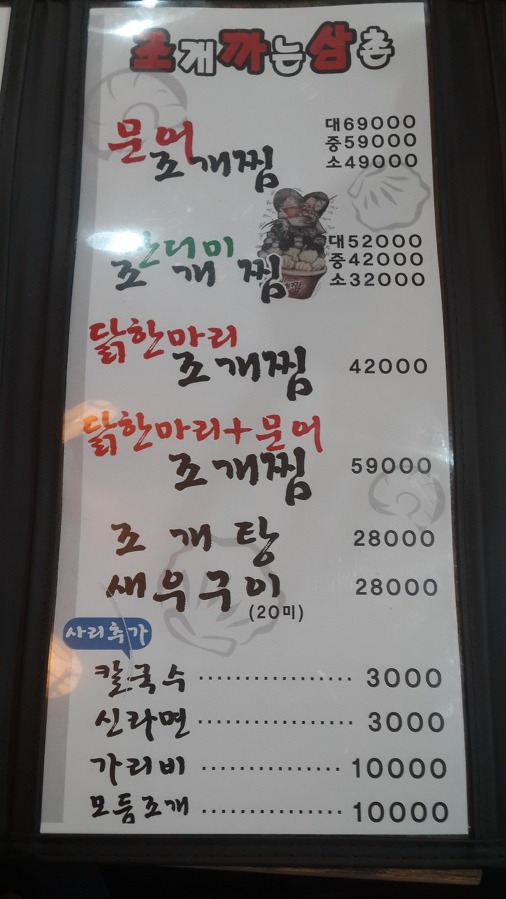 조개까는삼촌
문어
조개찜
대69000
중59000
소49000
산더미
조개찜
대52000
중42000
소32000
닭한마리
조개찜 42000
닭한마리+문어
조개찜 59000
조개탕 28000
새우구이 28000
(20미)
사리추가
칼국수 ················ 3000
신라면 ················ 3000
가리비 ··············· 10000
모듬조개 ··············· 10000